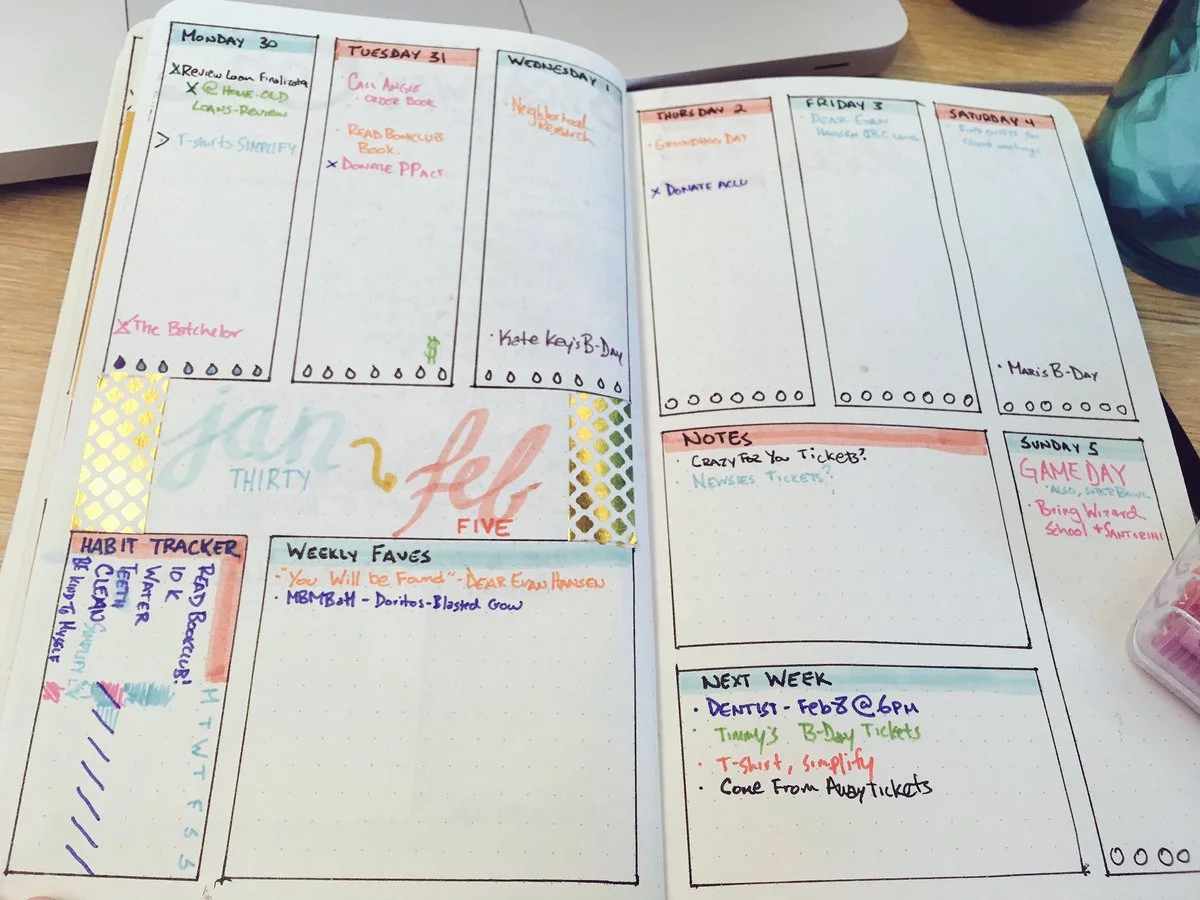 MONDAY 30
xREVIEW LOAN
x @ HOME-OLD
LOANS-REVIEW
> T-Shirts SIMPLIFY
x The Batchelor
TUESDAY 31
· CALL ANGIE
· ORDER BOOK
· READ BOOKCLUB
BOOK.
x DONATE PP ACT
$
WEDNESDAY 1
· Neighborhood
Research
· Kate Key's B-DAY
THURSDAY 2
· GROUNDHOG DAY
x DONATE ACLU
FRIDAY 3
· DEAR EVAN
HANSEN
SATURDAY 4
· FIND OUTFIT FOR
Client meetings
· MARI'S B-DAY
jan
THIRTY
feb
FIVE
HABIT TRACKER
READ BOOKCLUB!
10 K
WATER
TEETH
CLEAN
SIMPLIFY
BE KIND TO MYSELF
M T W T F S S
WEEKLY FAVES
· "You Will be Found" - DEAR EVAN HANSEN
· MBMBaM - Doritos-Blasted Gow
NOTES
· CRAZY FOR YOU TICKETS?
· NEWSIES TICKETS?
SUNDAY 5
GAME DAY
· ALSO, SUPER BOWL
· Bring Wizard
School + SANTORINI
NEXT WEEK
· DENTIST - Feb 8 @ 6PM
· Timmy's B-Day Tickets
· T-shirt, simplify
· Come From Away Tickets